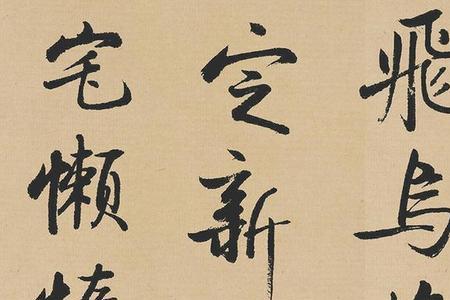 飛烏
定新
宅懶